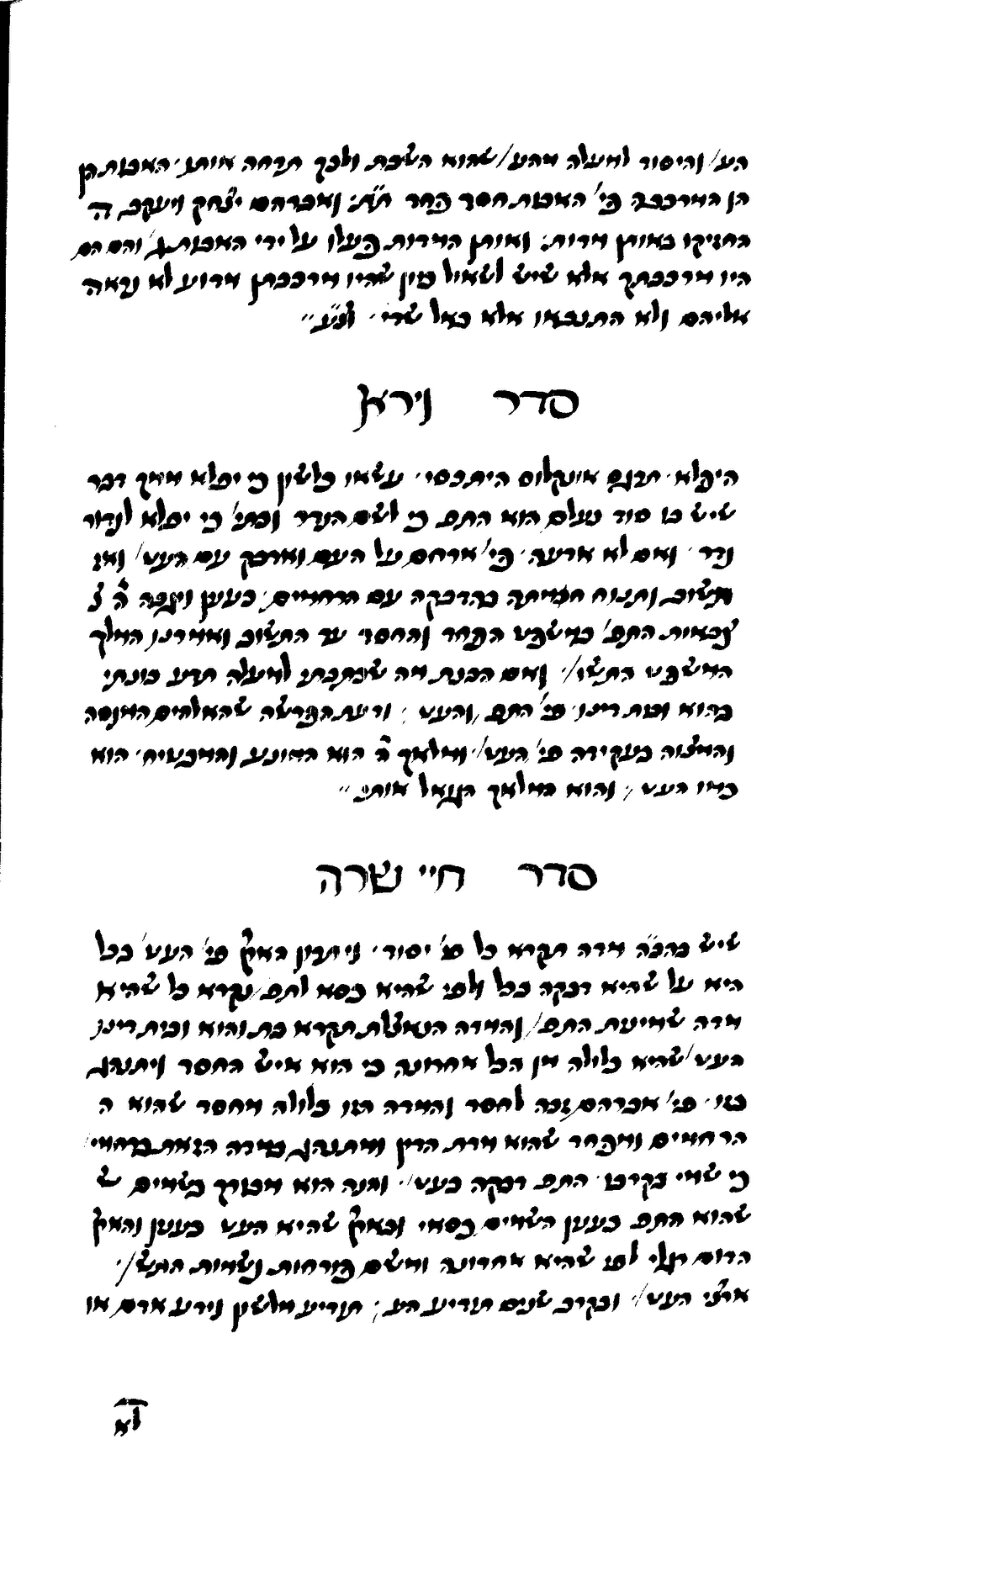 הע׳ והיסוד למעלה מהע׳ שהוא השבת ולכך תדחה אותו׳ האבות הן
הן המרכבה פי׳ האבות חסד פחד ת״ת: ואברהם יצחק ויעקב ה
החזיקו באותן מדות: ואותן המדות פעלו על ידי האבות והם הם
היו מרכבתך אלא שיש לשאול כיון שהיו מרכבתך מדוע לא נראה
אליהם ולא התנבאו אלא באל שדי׳
סדר וירא
היפלא׳ תרגם אונקלוס היתכסי׳ עשאו כלשון כי יפלא ממך דבר
שיש בו סוד נעלם הוא התפ׳ כי לשם הנדר וכתי׳ כי יפלא לנדור
נדר׳ ואם לא אדעה׳ פי׳ ארחם על העם ואדבק עם העט׳ ואז
תשוב ותנוח חמיתה בהדבקה עם הרחמים׳ כענין ויגבה ה׳
צבאות התפ׳ במשפט הפחד והחסד עד התשוב ואמרנו המלך
המשפט התשו׳ ואם הבנת מה שכתבתי למעלה תדע כונתי
בהוא ובית דינו׳ פי׳ התפ׳ והעט׳ ודעת הפרשה שהאלהים המנסה
והמצוה בעקידה פי׳ העט׳ ומלאך ה׳ הוא המונע והמבטיח׳ הוא
כמו העט׳ והוא המלאך הגואל אותי״
סדר חיי שרה
שיש בהב״ה מדה תקרא כל פי׳ יסוד׳ ניתרון בארץ פי׳ העט׳ בכל
היא על שהיא דבקה בכל ולפי שהיא כסא לתפ׳ נקרא כל שהיא
מדה שמיעת התפ׳ והמדה הנאצלת תקרא בת והוא ובית דינו
העט׳ שהיא כלולה מן הכל אחרונה כי הוא איש החסד ויתנהג
בזו׳ פי׳ אברהם זכה לחסד והמדה הזו כלולה מחסד שהוא ה
הרחמים ומפחד שהוא מדת הדין ומתנהג במדה הזאת ברחמי׳
כי שמי בקרבו׳ התפ׳ דבקה בעט׳ והנה הוא מבורך בשמים ש
שהוא התפ׳ כענין השמים כסאי ובארץ שהיא העט׳ כענין והארץ
הדום רגלי לפי שהיא אחרונה ומשם פורחות נשמות התש׳
ארצי העט׳ ובקרב שנים תודיע הע׳ תודיע מלשון וידע אדם או
לא